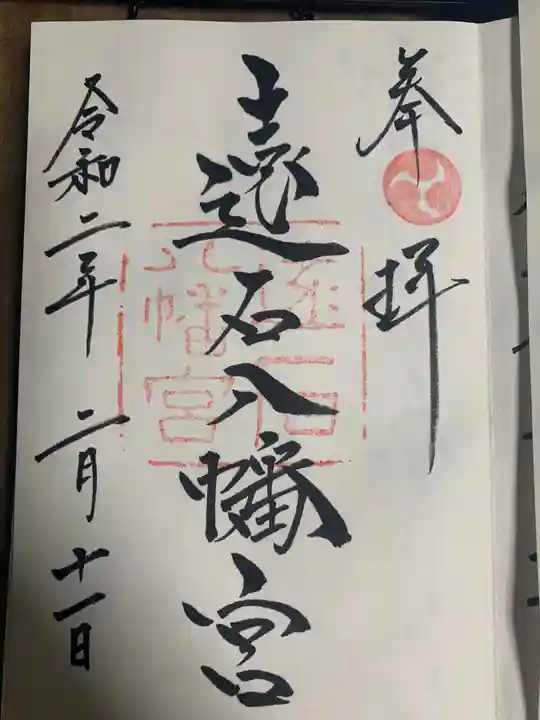 奉拝
遠石八幡宮
遠石
八幡宮
令和二年 二月十一日